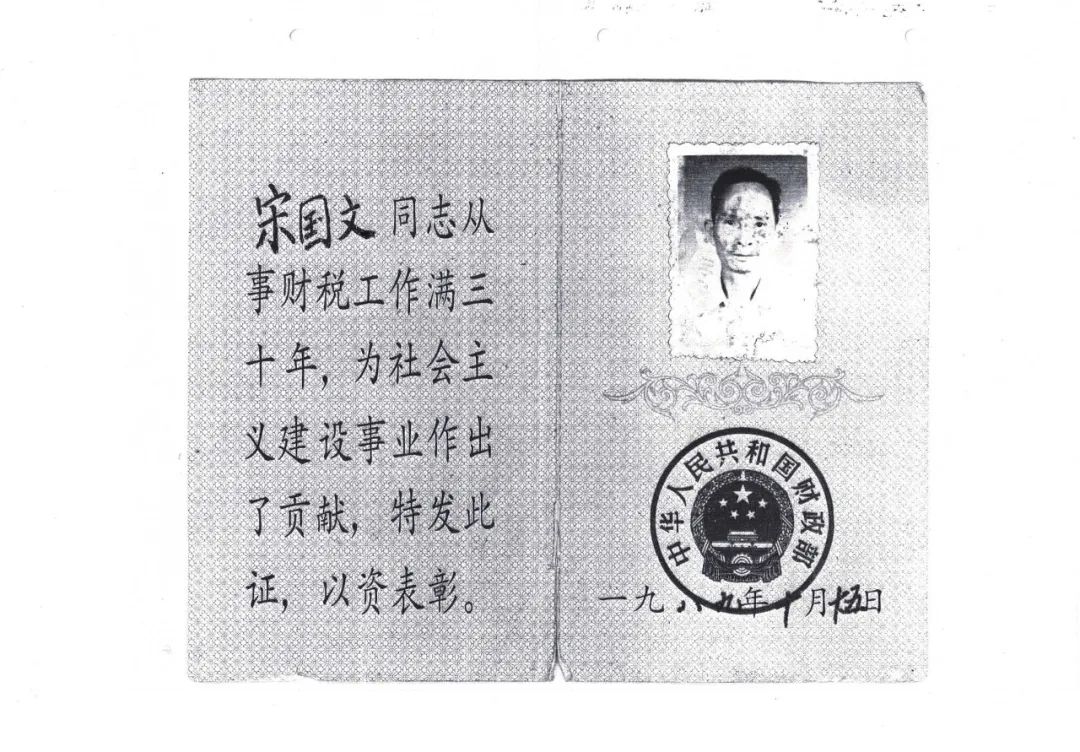 宋国文同志从
事财税工作满三
十年，为社会主
义建设事业作出
了贡献，特发此
证，以资表彰。
中华人民共和国财政部
一九八九年十月十五日